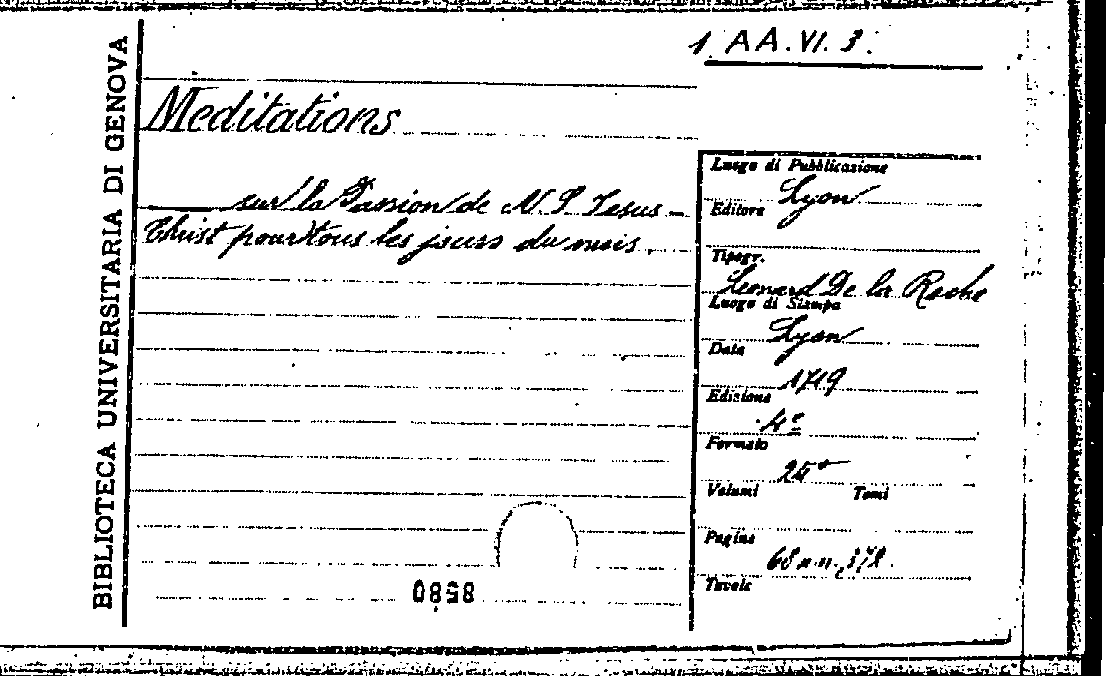 1 AA.VI.3.
BIBLIOTECA UNIVERSITARIA DI GENOVA
Meditations
sur la Passion de N. S. Jesus-
Christ pour tous les jours du mois.
Luogo di Pubblicazione
Lyon
Editore
Tipogr.
Leonard De la Roche
Luogo di Stampa
Lyon
Data
1719
Edizione
4e
Formato
24°
Volumi Tomi
Pagine
68 n.n., 378.
Tavole
0858